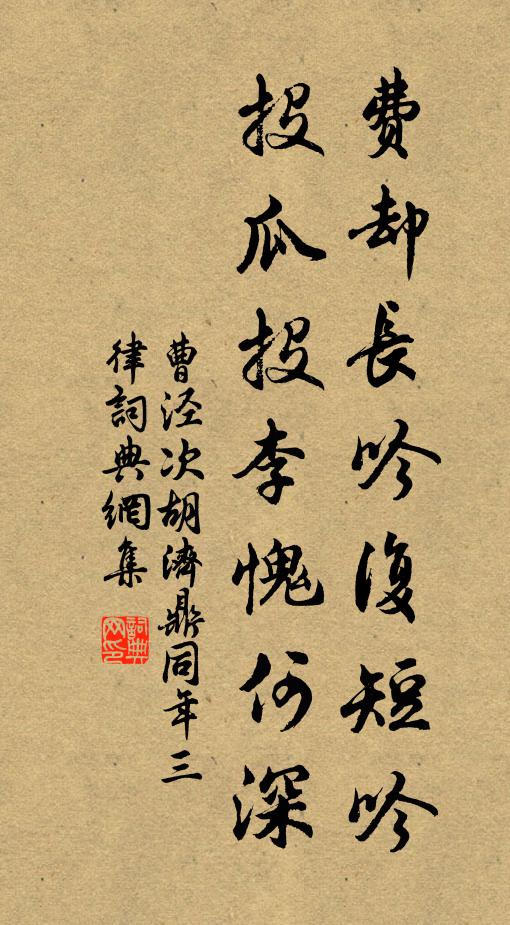 費却長吟復短吟
投瓜投李愧何深
曹泾次胡濟鼎同年三
律詞典網集
詞典
网印